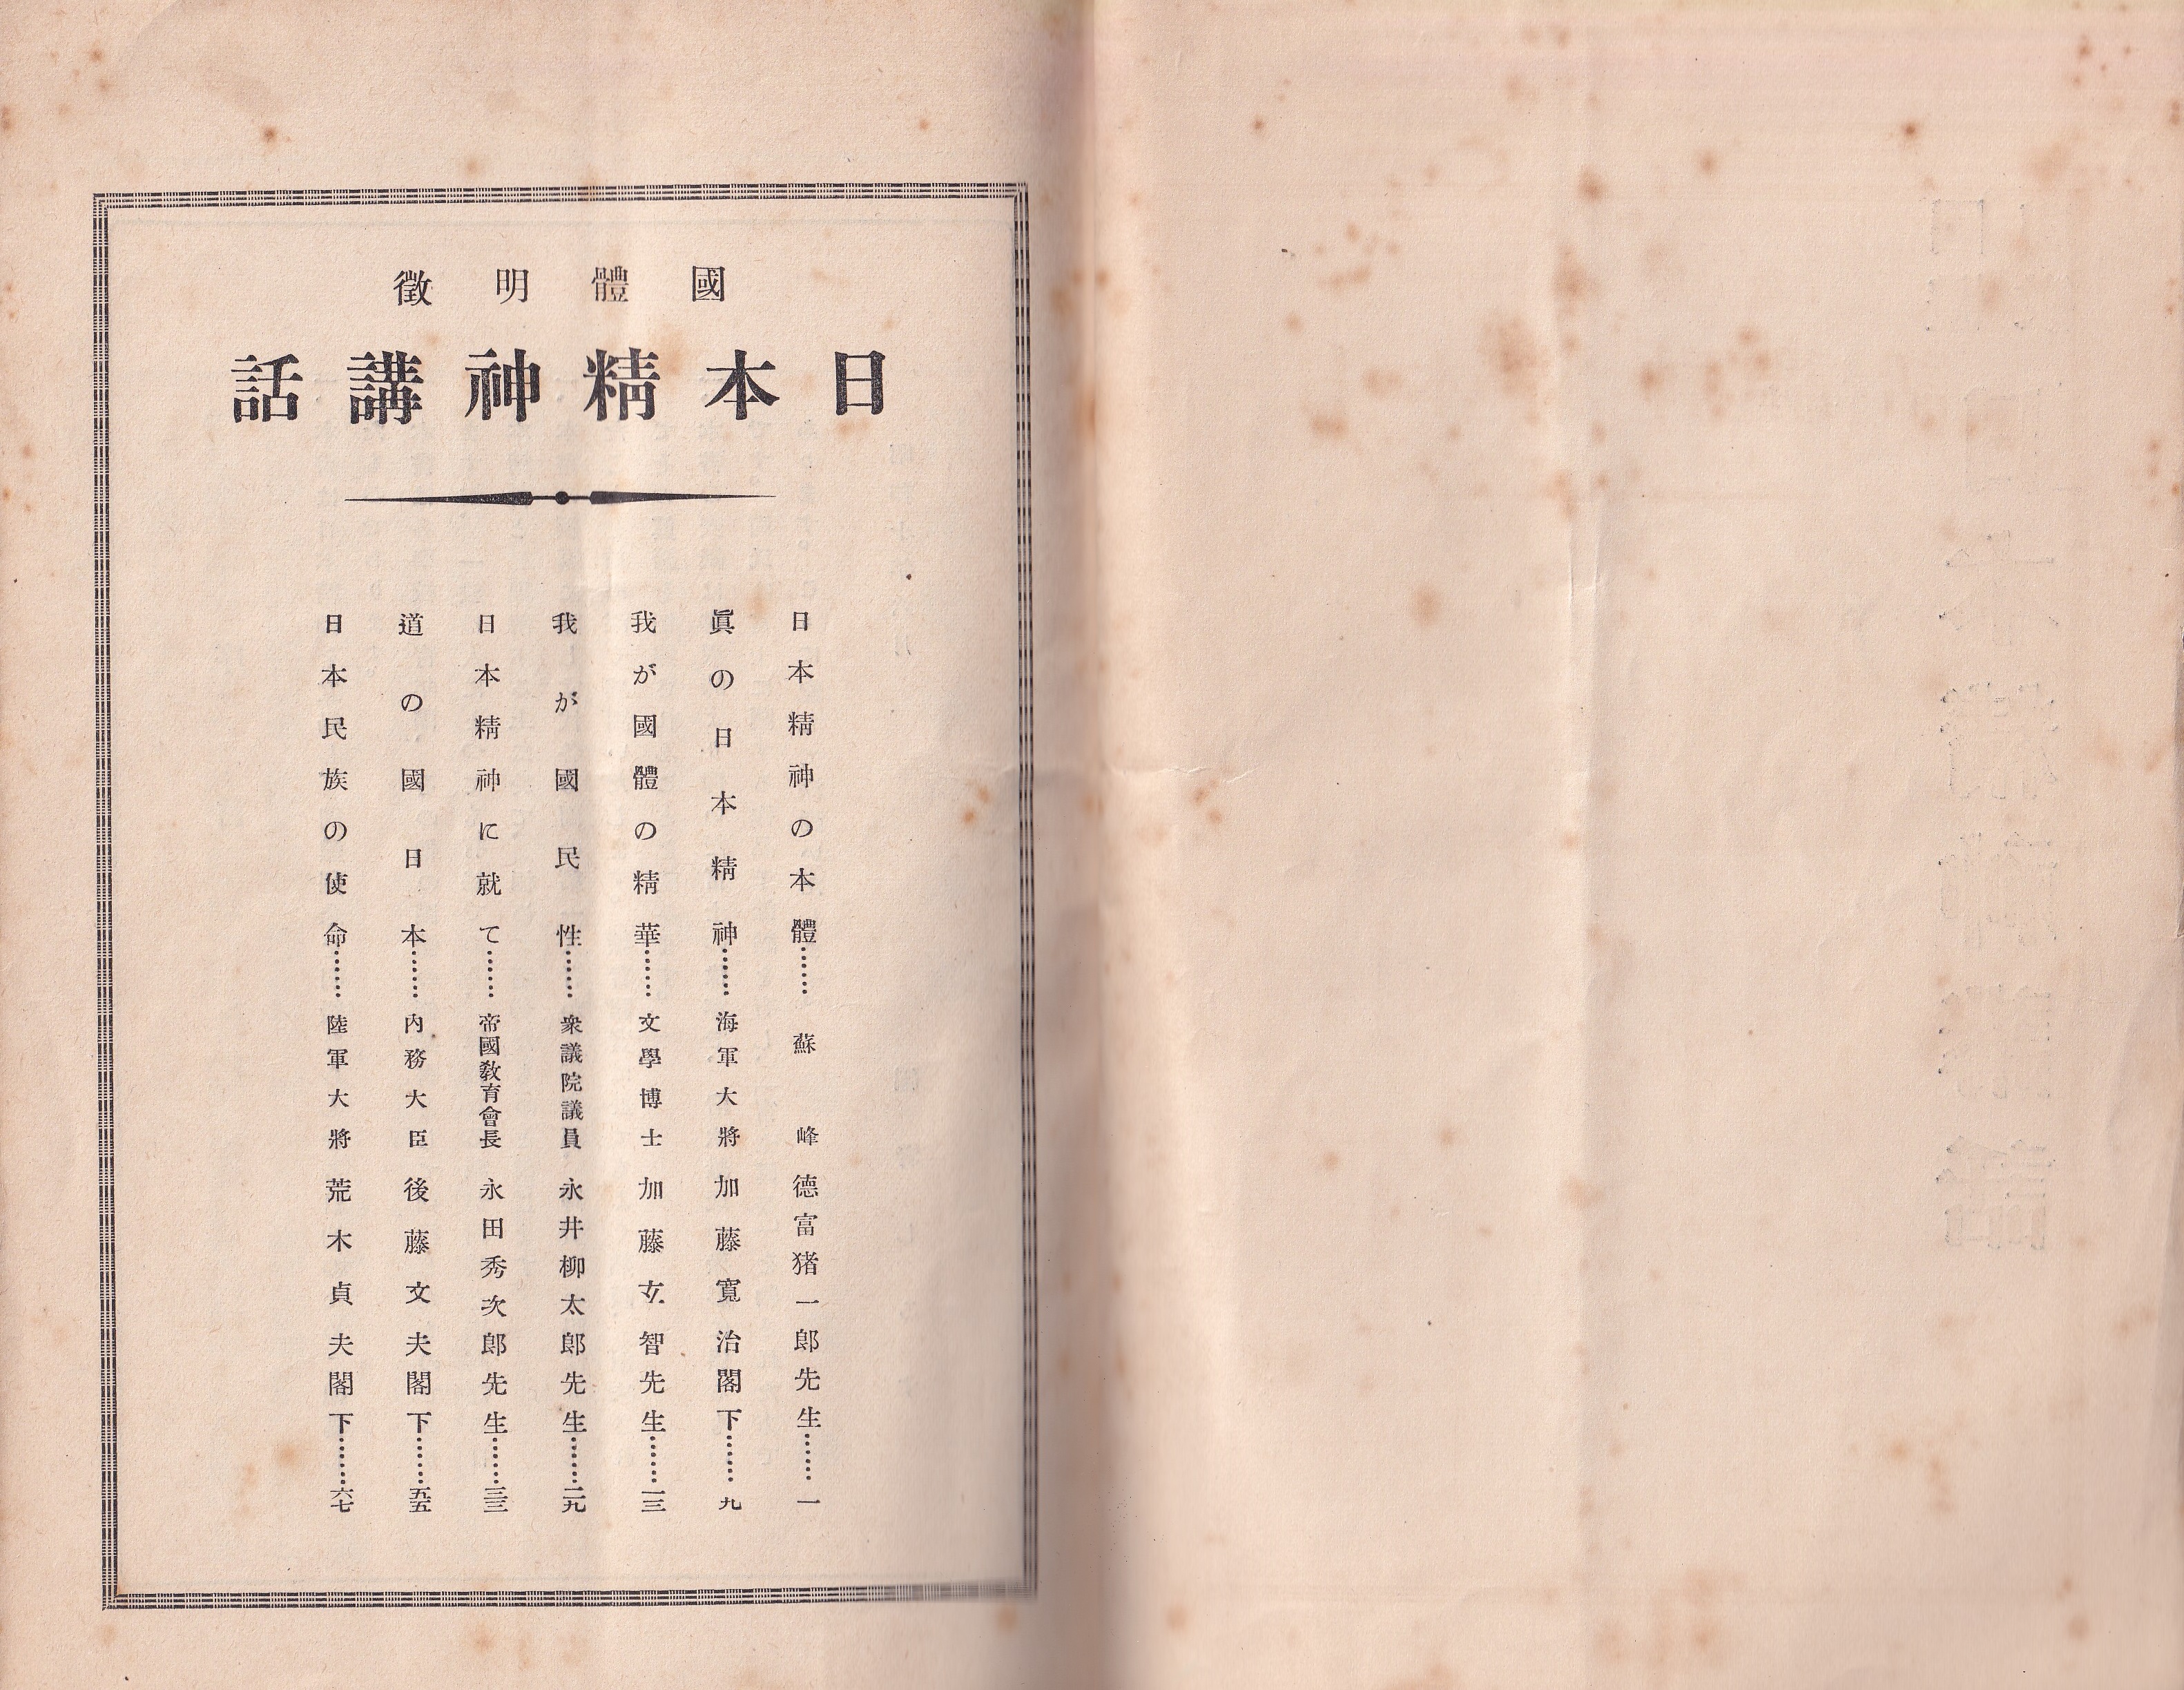 國體明徵
日本精神講話
日本精神の本體……蘇峰德富猪一郎先生……一
眞の日本精神……海軍大將加藤寬治閣下……九
我が國體の精華……文學博士加藤玄智先生……一三
我が國民性……衆議院議員永井柳太郎先生……二九
日本精神に就て……帝國敎育會長永田秀次郎先生……三三
道の國日本……內務大臣後藤文夫閣下……五五
日本民族の使命……陸軍大將荒木貞夫閣下……六七